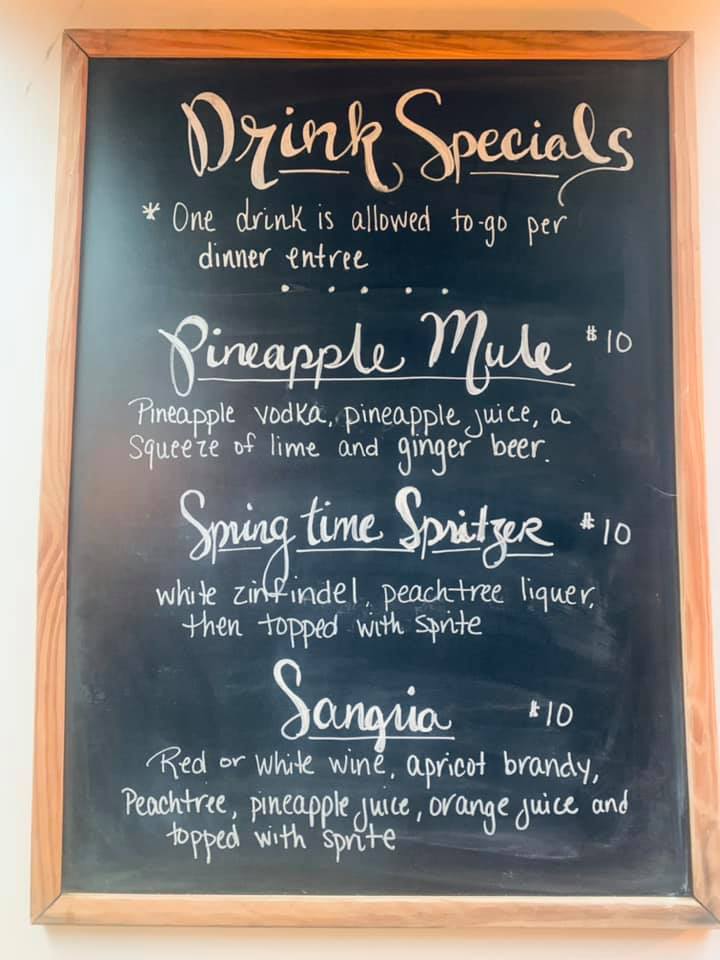 Drink Specials
* One drink is allowed to-go per
dinner entree
. . . . .
Pineapple Mule $10
Pineapple vodka, pineapple juice, a
squeeze of lime and ginger beer.
Spring time Spritzer $10
white zinfindel, peachtree liquer,
then topped with sprite
Sangria $10
Red or white wine, apricot brandy,
Peachtree, pineapple juice, orange juice and
topped with sprite